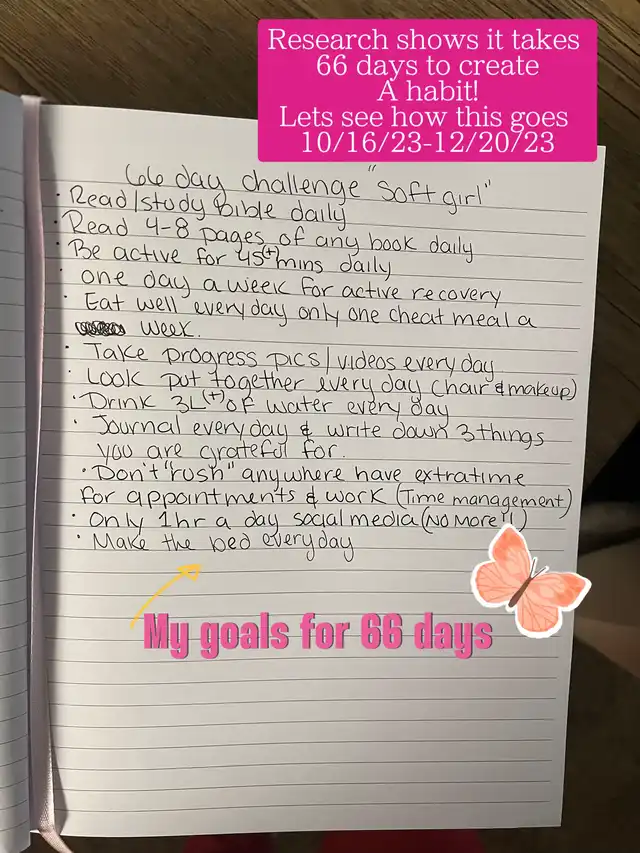 Research shows it takes
66 days to create
A habit!
Lets see how this goes
10/16/23-12/20/23
66 day challenge "Soft girl"
· Read/study Bible daily
· Read 4-8 pages of any book daily
· Be active for 45(+) mins daily
· one day a week for active recovery
· Eat well everyday only one cheat meal a
week.
· Take progress pics/videos everyday
· Look put together every day (hair & makeup)
· Drink 3L(+) of water every day
· Journal everyday & write down 3 things
you are grateful for.
· Don't "rush" anywhere have extra time
for appointments & work (Time management)
· Only 1hr a day social media (NO More!!)
· Make the bed everyday
My goals for 66 days